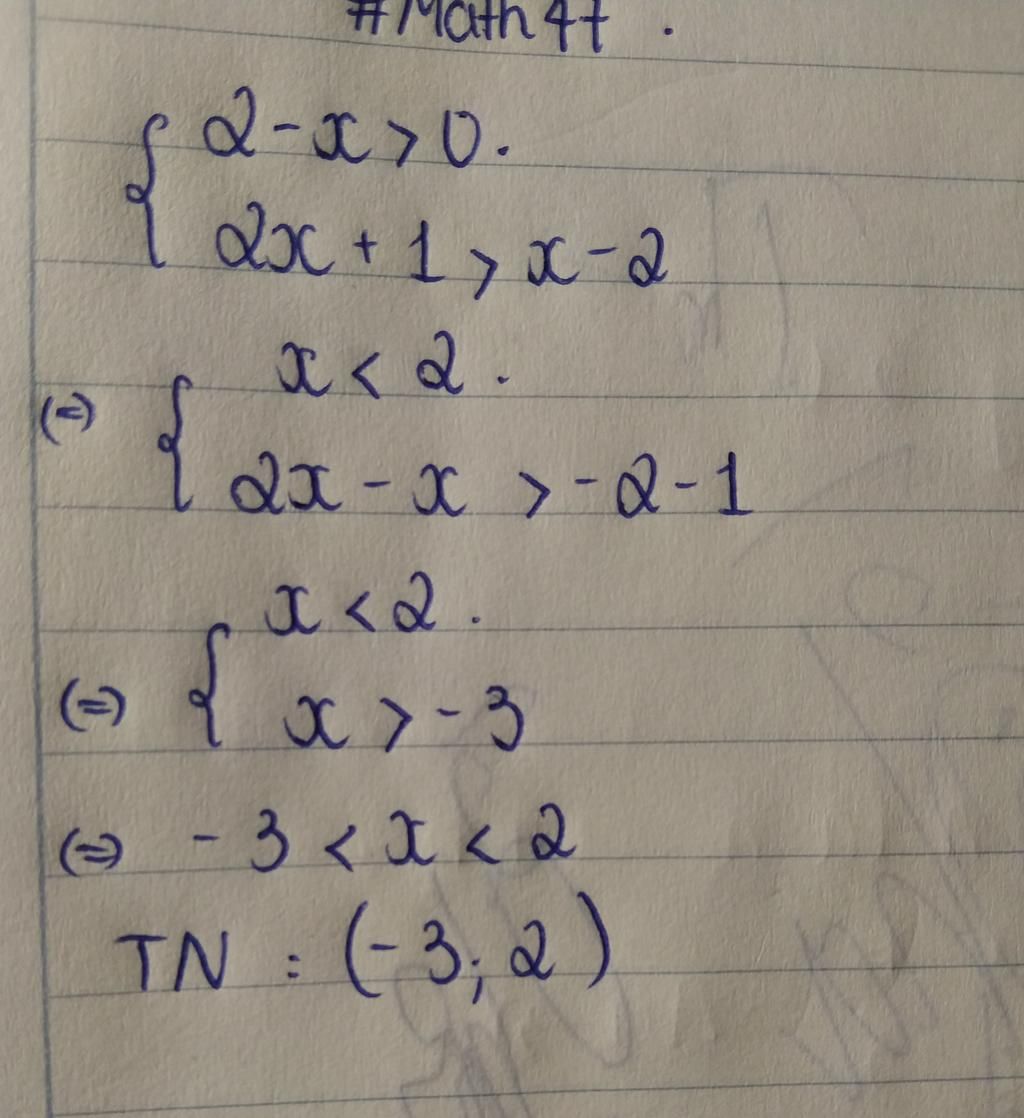 #Math4t.
2-x>0.
2x+1>x-2
x<2.
(=) 2x-x>-2-1
x<2.
(=) x>-3
(=) -3<x<2
TN : (-3; 2)